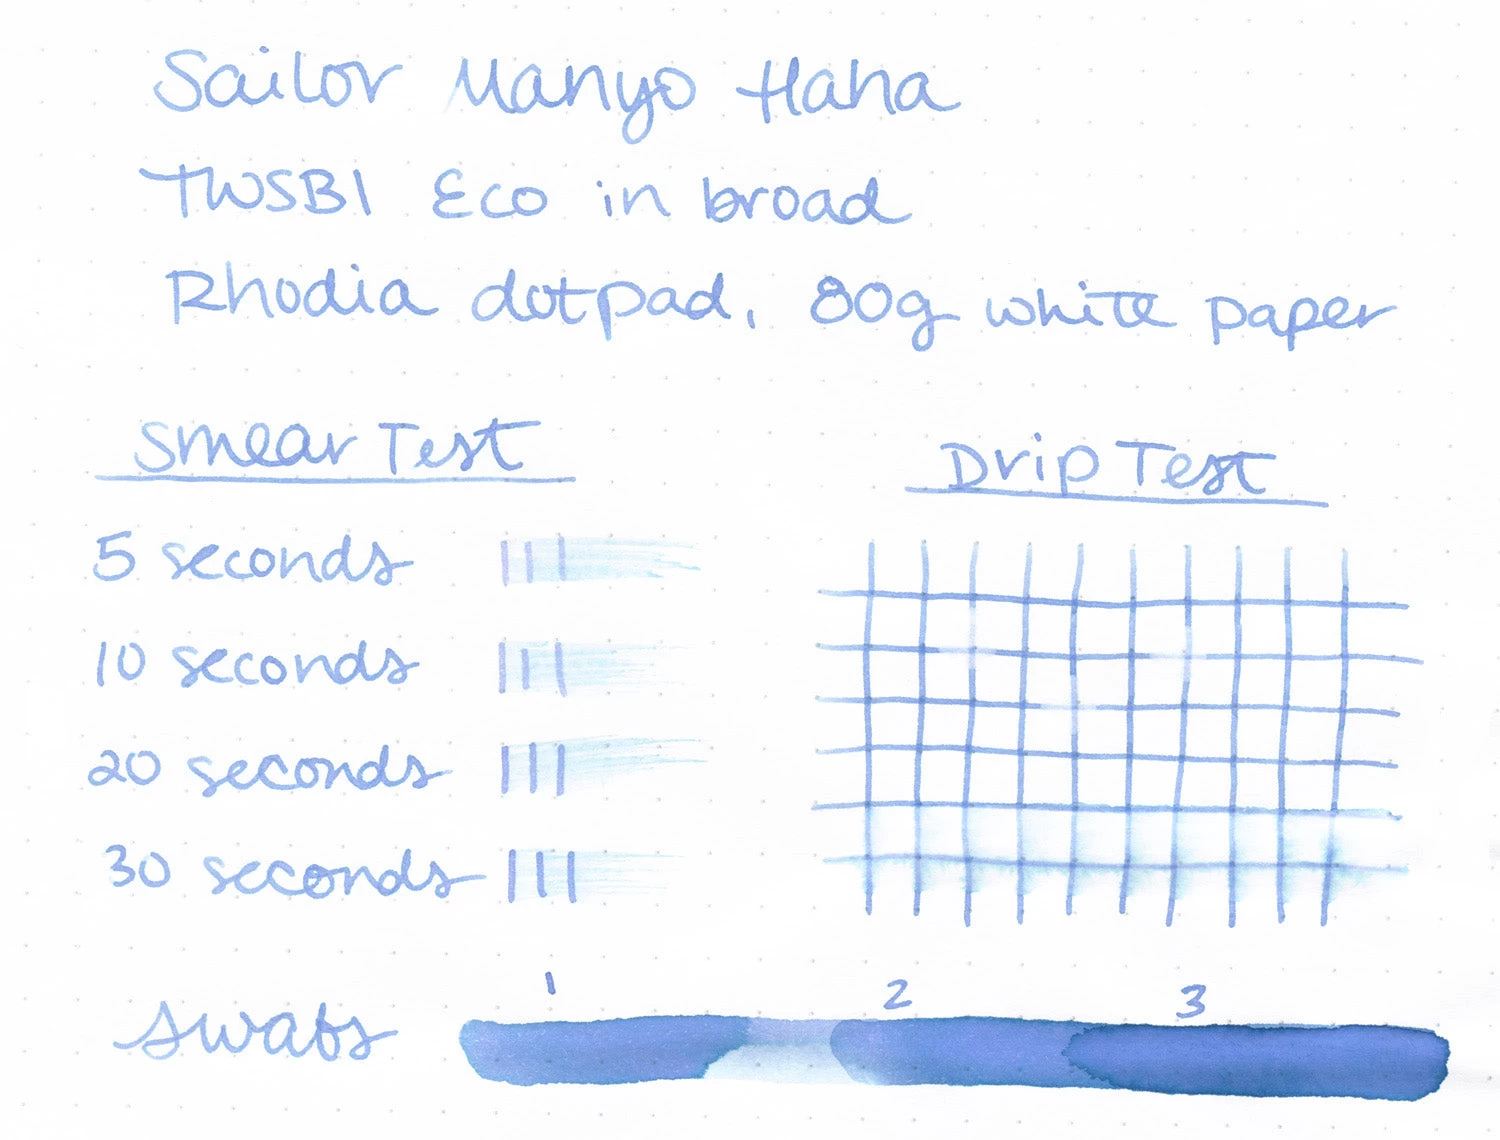 Sailor Manyo Haha
TWSBI Eco in broad
Rhodia dotpad, 80g white paper
Smear Test
Drip Test
5 seconds
10 seconds
20 seconds
30 seconds
Swabs
1 2 3